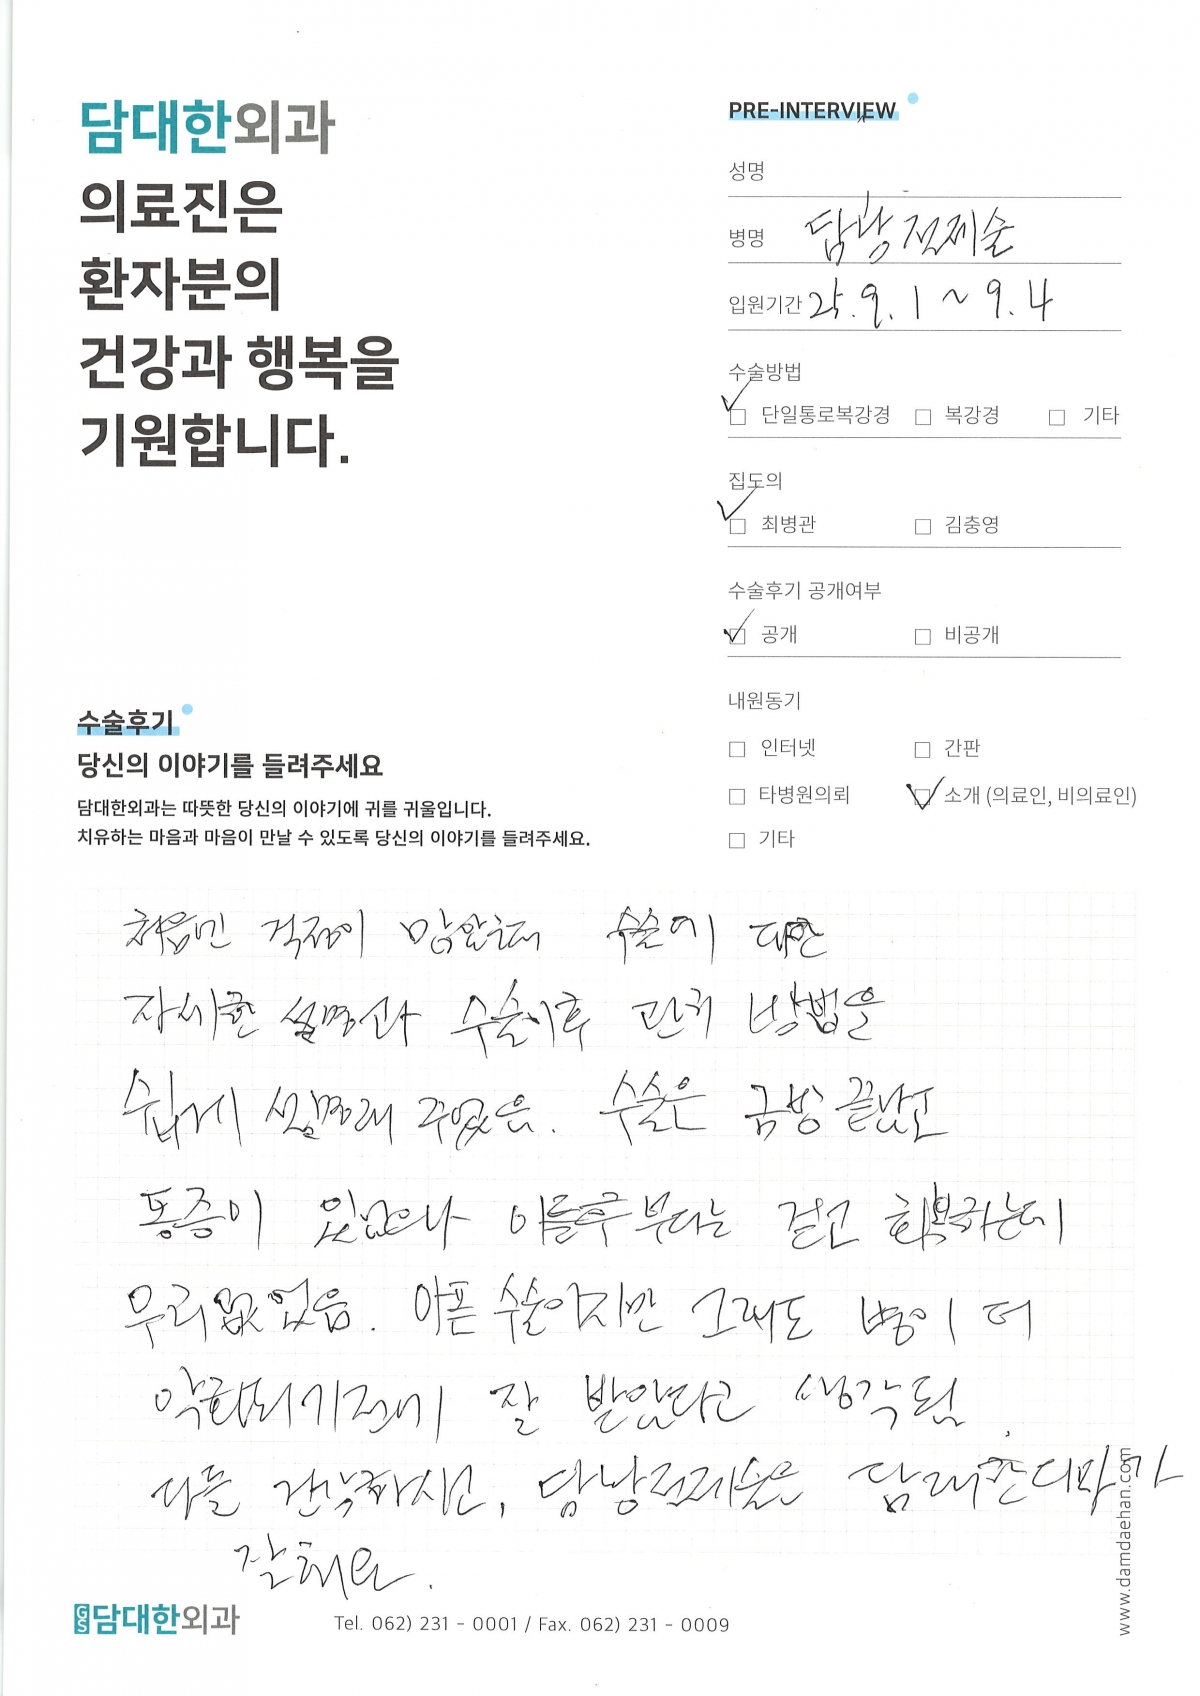 담대한외과
의료진은
환자분의
건강과 행복을
기원합니다.
PRE-INTERVIEW
성명
병명 담낭절제술
입원기간 25.9.1 ~ 9.4
수술방법
단일통로복강경 복강경 기타
집도의
최병관 김충영
수술후기 공개여부
공개 비공개
내원동기
인터넷 간판
타병원의뢰 소개 (의료인, 비의료인)
기타
수술후기
당신의 이야기를 들려주세요
담대한외과는 따뜻한 당신의 이야기에 귀를 귀울입니다.
치유하는 마음과 마음이 만날 수 있도록 당신의 이야기를 들려주세요.
처음엔 걱정이 많았는데 수술에 대한
자세한 설명과 수술이후 관리 방법을
쉽게 설명해 주었음. 수술은 금방 끝났고
통증이 있었으나 이틀후부터는 걷고 회복하는데
무리없었음. 아픈 수술이지만 그래도 병이 더
악화되기전에 잘 받았다고 생각됨.
다들 건강하시고, 담낭절제술은 담대한외과가
잘해요.
GS 담대한외과
Tel. 062) 231 - 0001 / Fax. 062) 231 - 0009
www.damdaehan.com